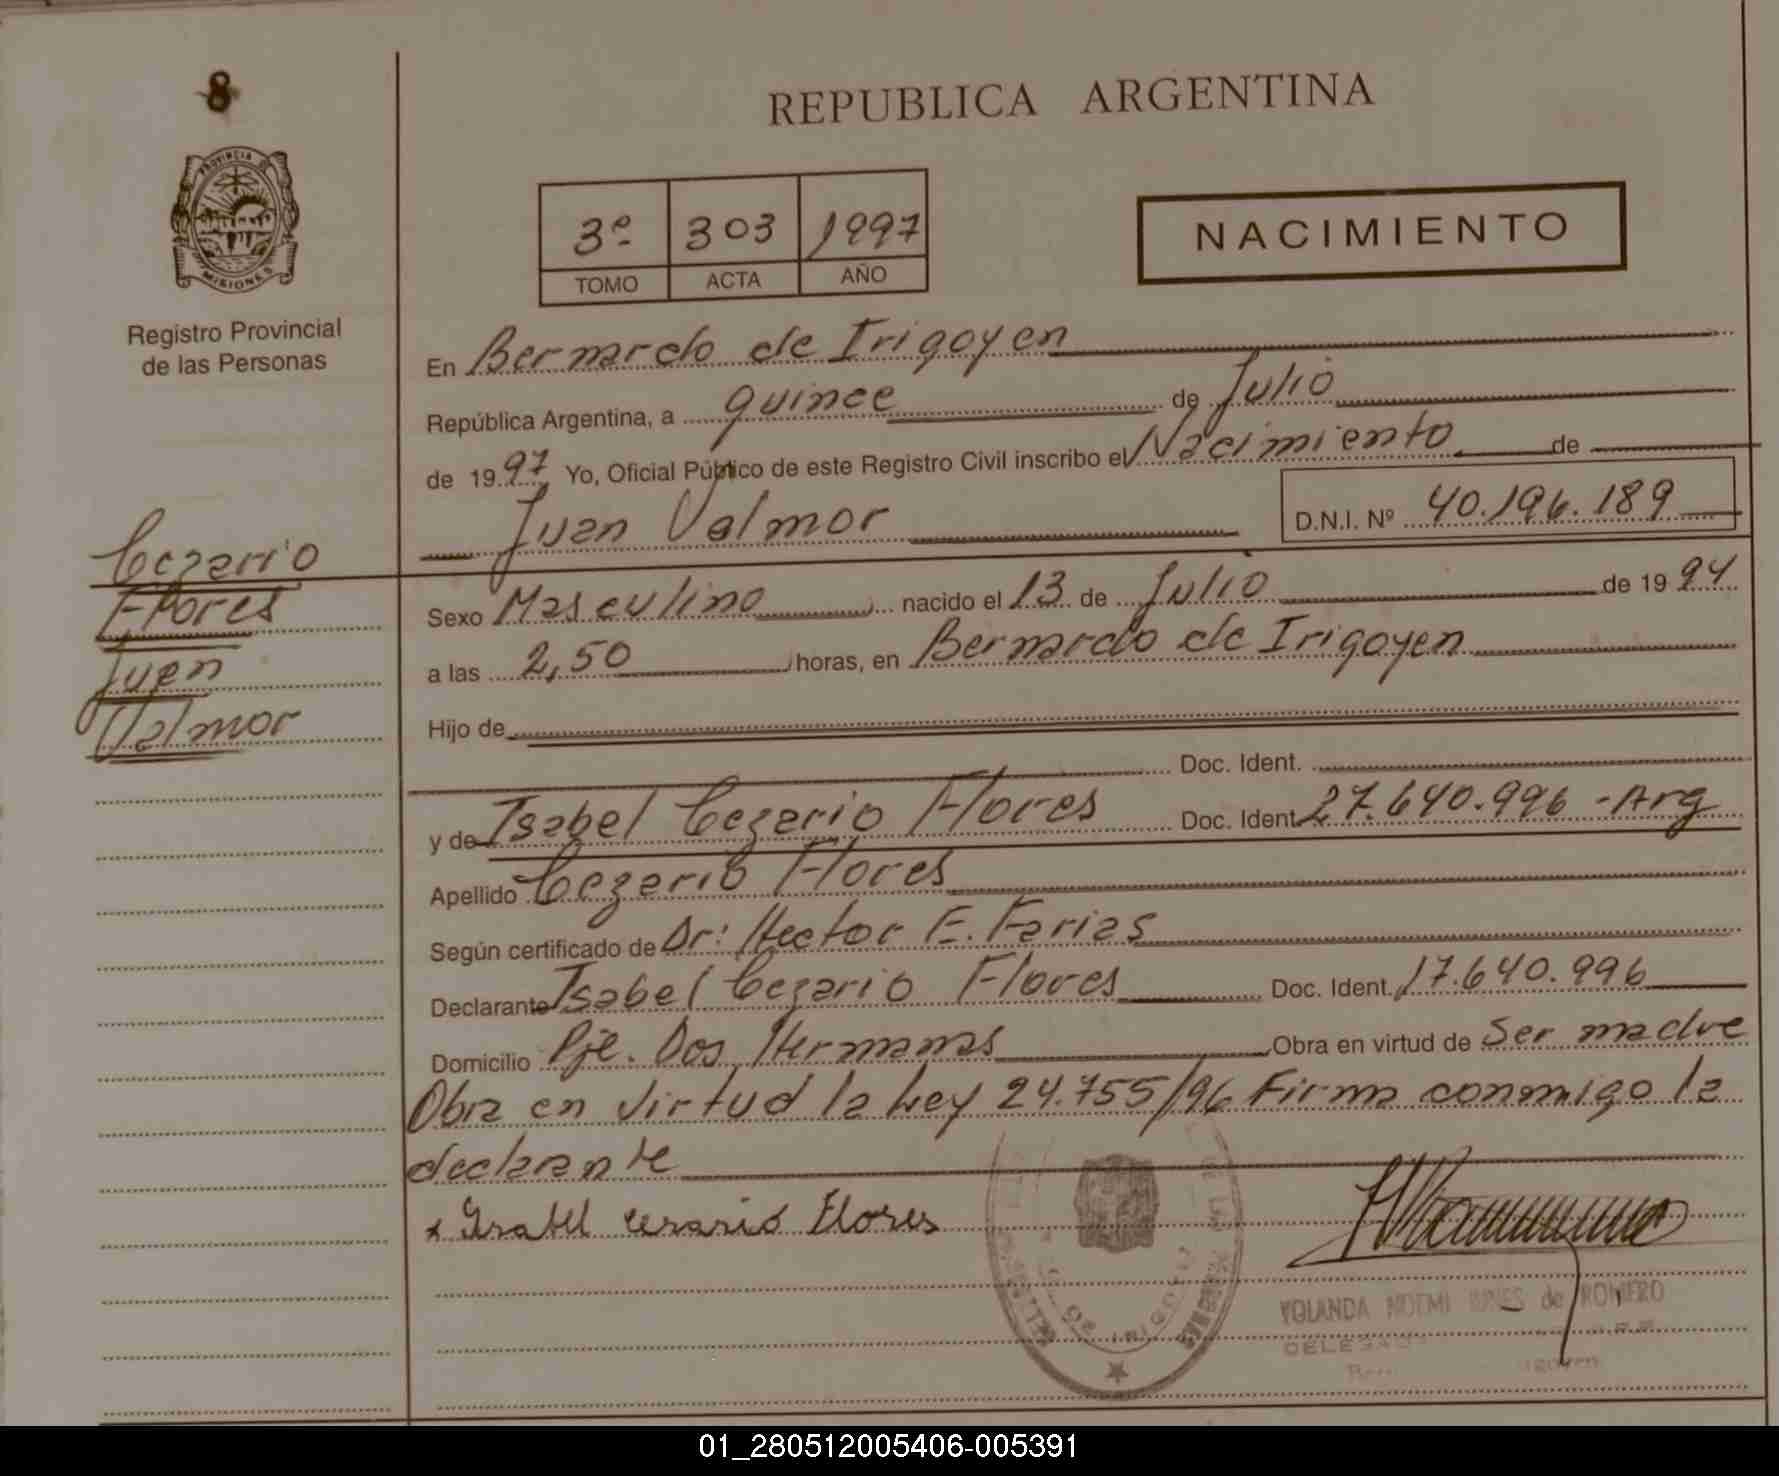 8
REPUBLICA ARGENTINA
PROVINCIA DE
MISIONES
Registro Provincial
de las Personas
3º 303 1997
TOMO ACTA AÑO
NACIMIENTO
En Bernardo de Irigoyen
República Argentina, a quince de Julio
de 1997 Yo, Oficial Público de este Registro Civil inscribo el Nacimiento de
Juan Valmor D.N.I. Nº 40.196.189
Cezario
Flores
Juan
Valmor
Sexo Masculino nacido el 13 de Julio de 1994
a las 2,50 horas, en Bernardo de Irigoyen
Hijo de
Doc. Ident.
y de Isabel Cezario Flores Doc. Ident. 27.640.996 - Arg
Apellido Cezario Flores
Según certificado de Dr: Hector E. Farias
Declarante Isabel Cezario Flores Doc. Ident. 17.640.996
Domicilio Pje. Dos Hermanas Obra en virtud de Ser madre
Obra en virtud la Ley 24.755/96 Firma conmigo la
declarante
x Isabel cesario Flores
YOLANDA NOEMI de ROMERO
01_280512005406-005391